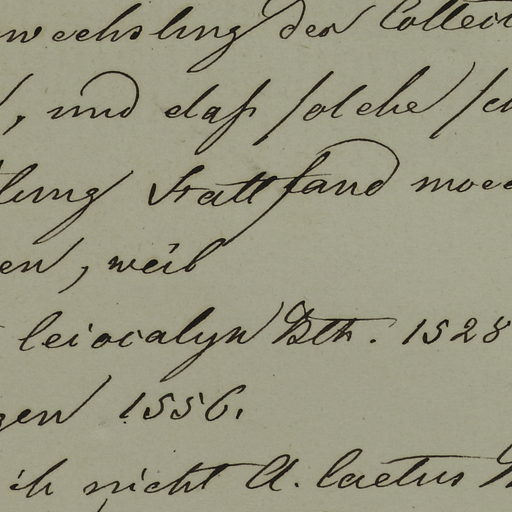 wechslung der Collect
, und daß solche sch
lung stattfand moec
en, weil
leiocalyx Bth. 1528
gen 1556.
ich nicht A. laetus